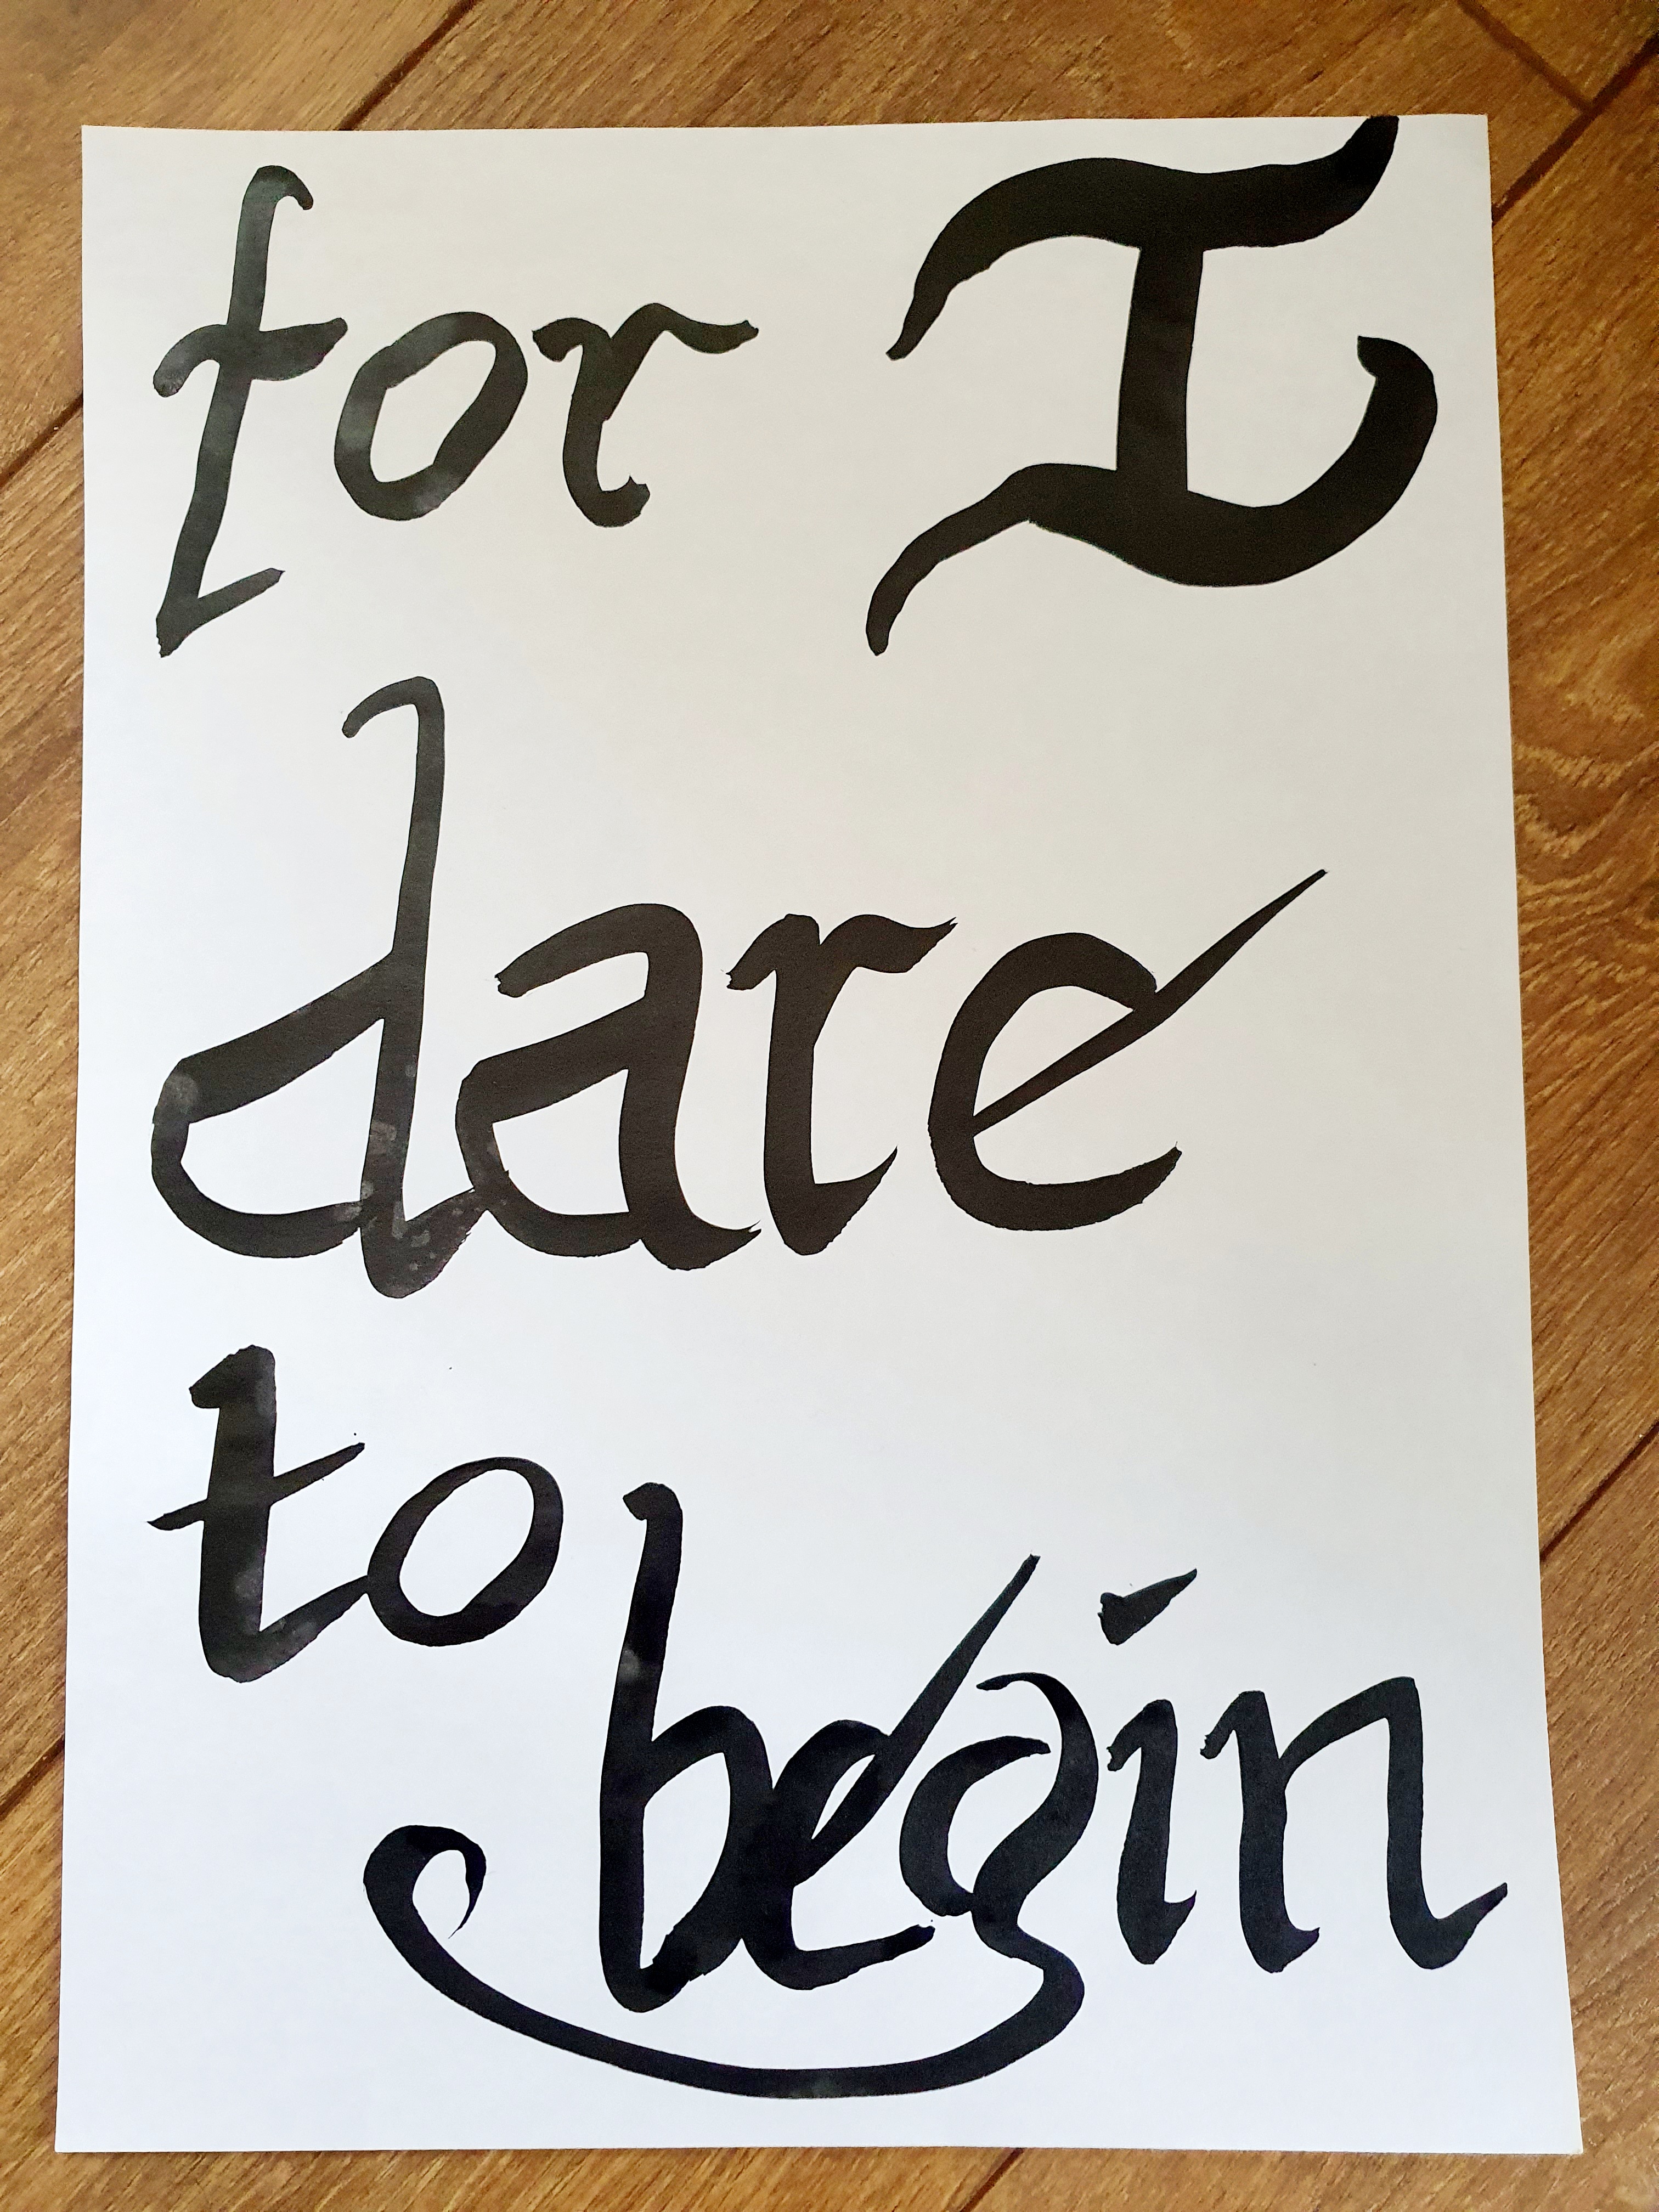 for I
dare
to
begin